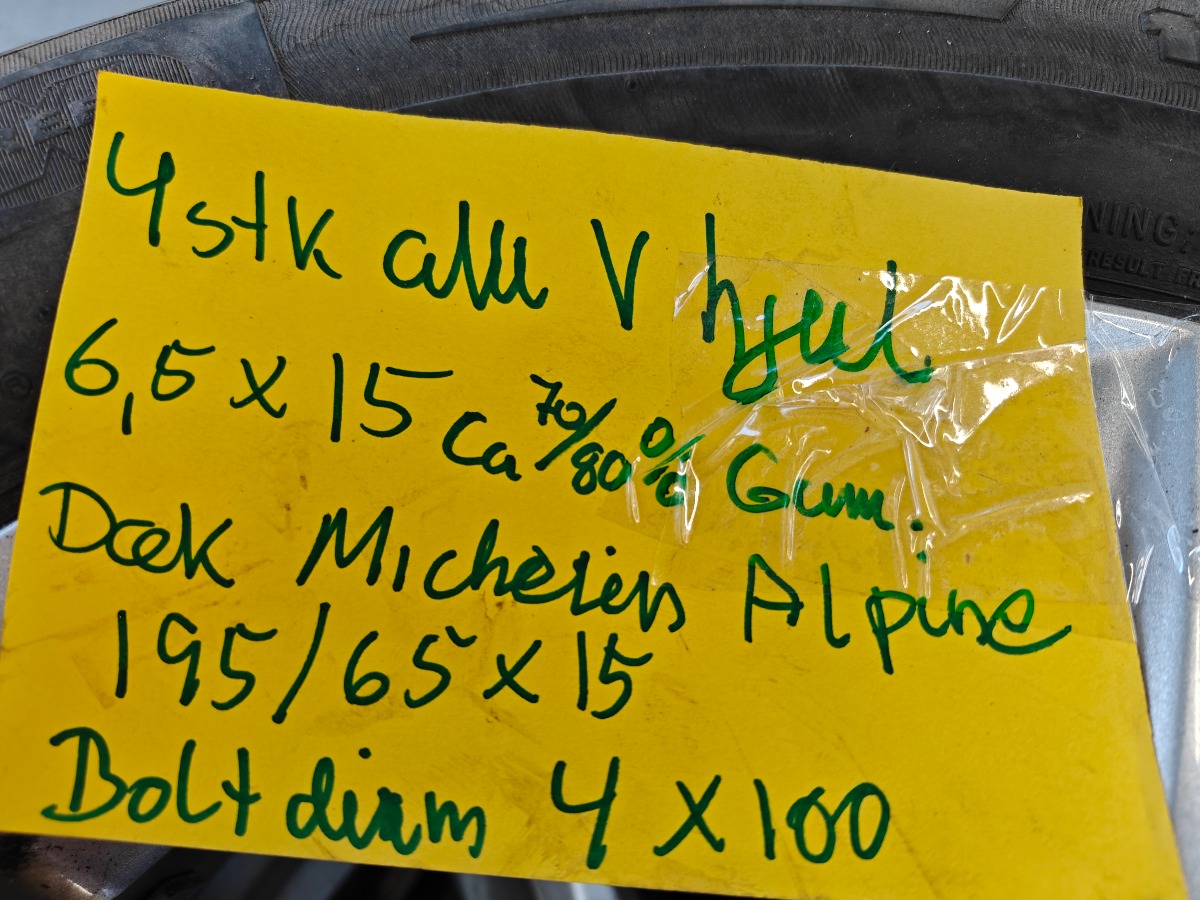 4 stk alu V hjul
6,5 x 15 Ca 70/80% Gum.
Dæk Michelin Alpine
195/65 x 15
Bolt diam 4 x 100
NING
RESULT FR